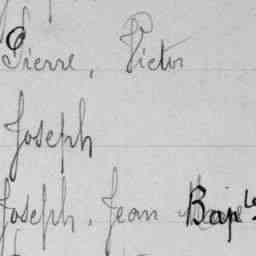 Pierre, Victor
Joseph
Joseph, Jean Bapte